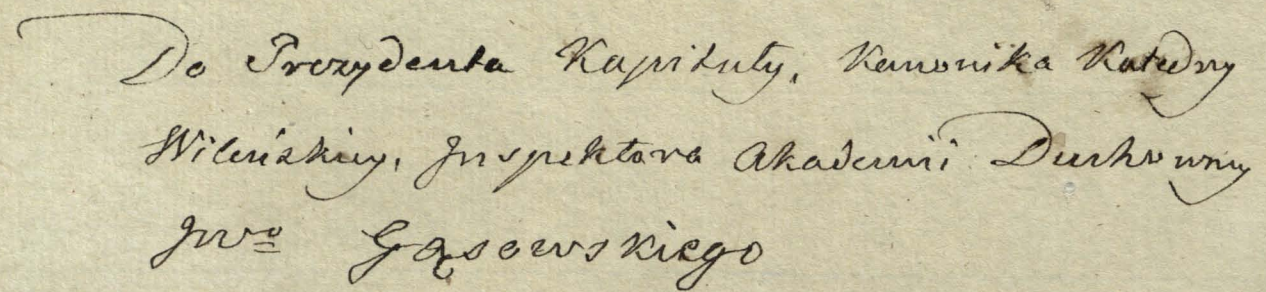 Do Prezydenta Kapituły, Kanonika Katedry
Wileńskiey, Inspektora Akademii Duchowney
JWo Gąsowskiego